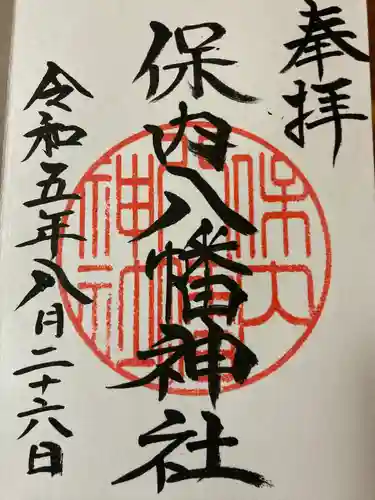 奉拝
保内八幡神社
令和五年八月二十六日
保内
八幡
神社